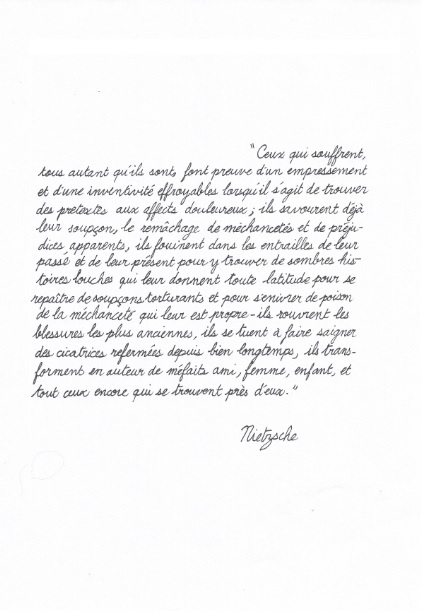 "Ceux qui souffrent,
tous autant qu'ils sont, font preuve d'un empressement
et d'une inventivité effroyables lorsqu'il s'agit de trouver
des prétextes aux affects douloureux ; ils savourent déjà
leur soupçon, le remâchage de méchancetés et de préju-
dices apparents, ils fouinent dans les entrailles de leur
passé et de leur présent pour y trouver de sombres his-
toires louches qui leur donnent toute latitude pour se
repaître de soupçons torturants et pour s'enivrer de poison
de la méchanceté qui leur est propre - ils rouvrent les
blessures les plus anciennes, ils se tuent à faire saigner
des cicatrices refermées depuis bien longtemps, ils trans-
forment en auteur de méfaits ami, femme, enfant, et
tout ceux encore qui se trouvent près d'eux."
Nietzsche